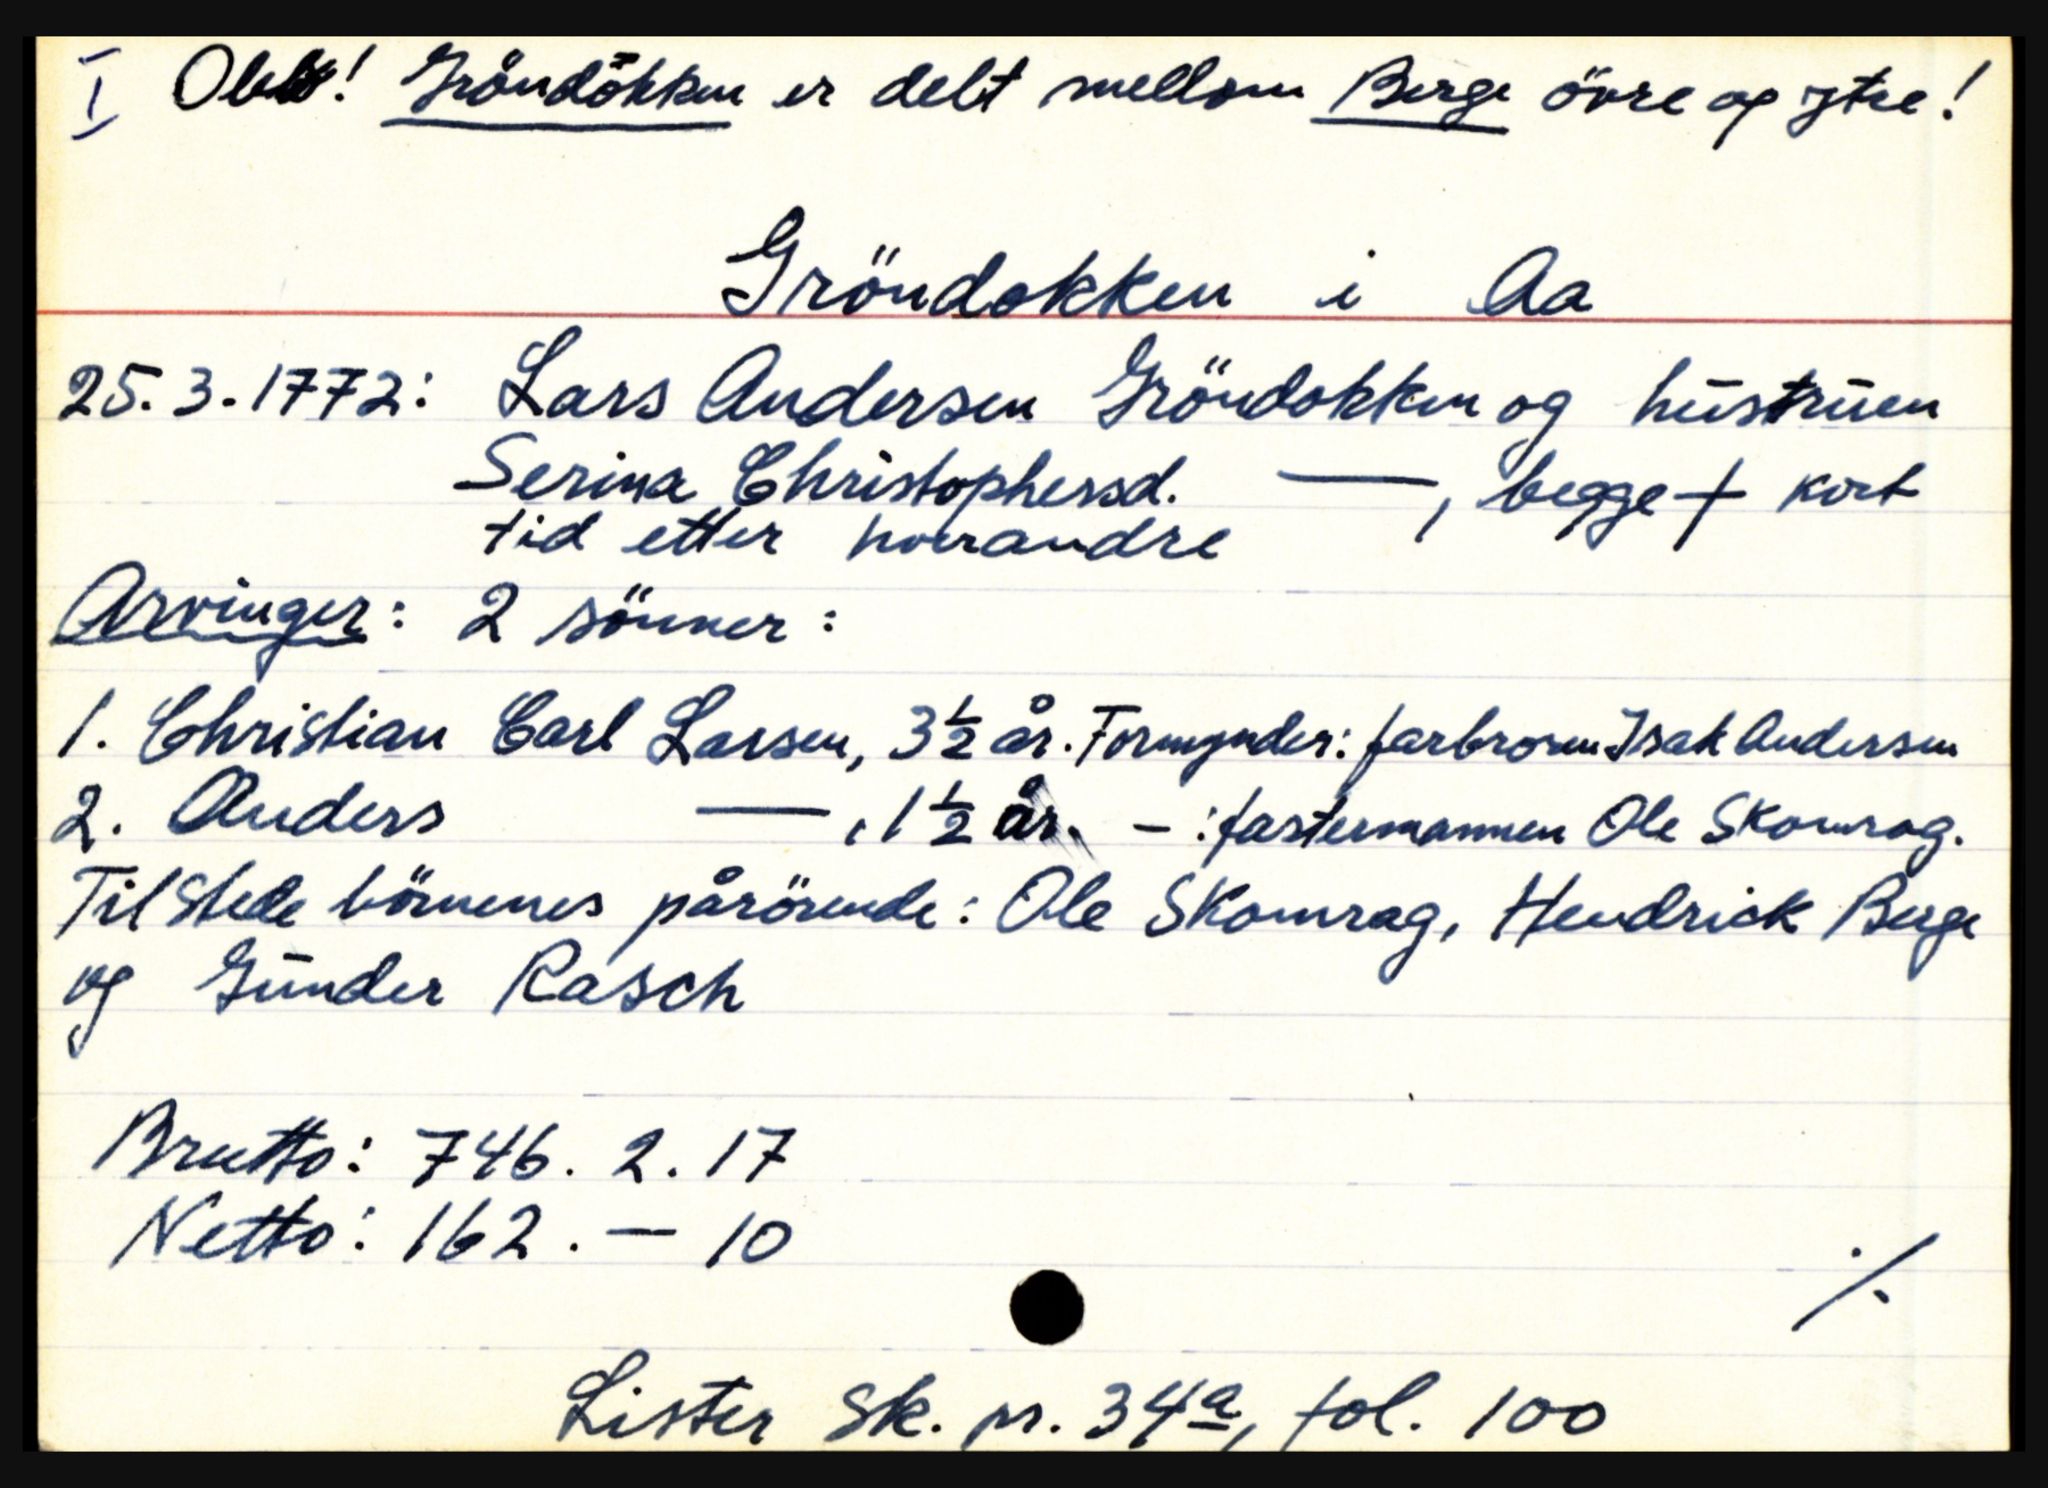 I Obs! Gröndökken er delt mellom Berge övre og ytre!
Gröndokken i Aa
25.3.1772: Lars Andersen Gröndokken og hustruen
Serina Christophersd. —, begge + kort
tid etter hverandre
Arvinger: 2 sönner:
1. Christian Carl Larsen, 3 1/2 år. Formynder: farbroren Isak Andersen
2. Anders —, 1 1/2 år. – : fastermannen Ole Skomrag.
Tilstede börnenes pårörende: Ole Skomrag, Hendrick Berge
og Gunder Rasch
Brutto: 746. 2. 17
Netto: 162. — 10
./.
Lister Sk. pr. 34a, fol. 100